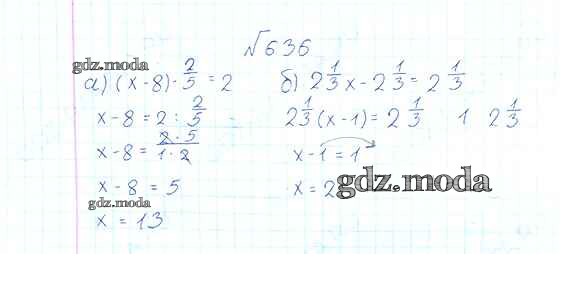 √636
gdz.moda
а) (x-8)·2/5 = 2
x-8 = 2 : 2/5
x-8 = 2·5/1·2
x-8 = 5
gdz.moda
x = 13
б) 2 1/3 x - 2 1/3 = 2 1/3
2 1/3 (x-1) = 2 1/3   1   2 1/3
x-1 = 1
x = 2
gdz.moda